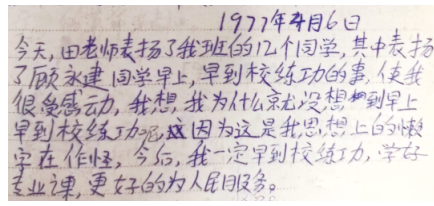 1977年4月6日
今天,田老师表扬了我班的12个同学,其中表扬
了顾永建同学早上,早到校练功的事,使我
很受感动,我想,我为什么就没想到早上
早到校练功呢,这因为这是我思想上的懒
字在作怪,今后,我一定早到校练功,学好
专业课,更好的为人民服务。